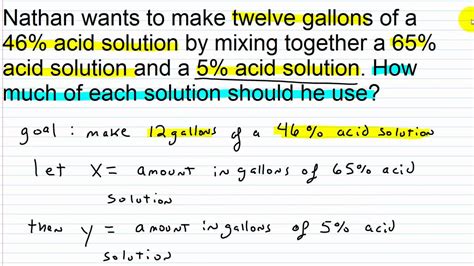 Nathan wants to make twelve gallons of a
46% acid solution by mixing together a 65%
acid solution and a 5% acid solution. How
much of each solution should he use?
goal : make 12 gallons of a 46% acid solution
let x = amount in gallons of 65% acid
solution
then y = amount in gallons of 5% acid
solution